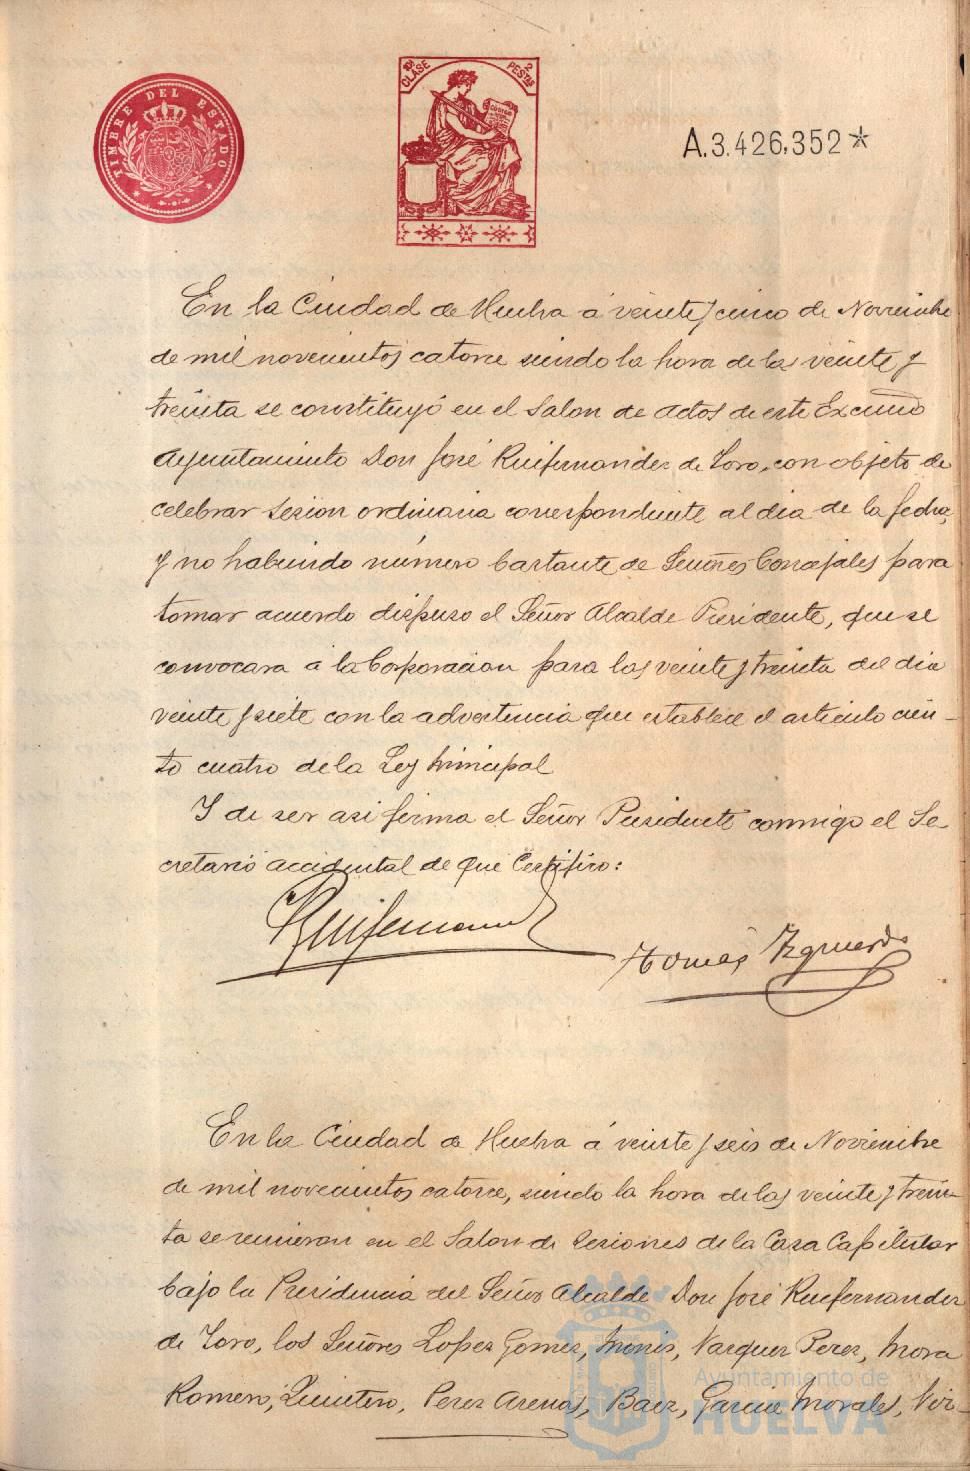 TIMBRE DEL ESTADO
10ª CLASE
2 PESTAS
A.3.426,352*
En la Ciudad de Huelva á veinte y cinco de Noviembre
de mil novecientos catorce siendo la hora de las veinte y
treinta se constituyó en el Salon de Actos de este Excmo
Ayuntamiento Don José Ruifernandez de Toro, con objeto de
celebrar sesion ordinaria correspondiente al dia de la fecha,
y no habiendo número bastante de Señores Concejales para
tomar acuerdo dispuso el Señor Alcalde Presidente, que se
convocara á la Corporacion para las veinte y treinta del dia
veinte y siete con la advertencia que establece el articulo cien-
to cuatro de la Ley Municipal
Y de ser asi firma el Señor Presidente conmigo el Se-
cretario accidental de que Certifico:
Ruifernandez
Tomás Izquierdo
En la Ciudad de Huelva á veinte y seis de Noviembre
de mil novecientos catorce, siendo la hora de las veinte y trein-
ta se reunieron en el Salon de Sesiones de la Casa Capitular
bajo la Presidencia del Señor Alcalde Don José Ruifernandez
de Toro, los Señores Lopez Gomez, Monis, Vazquez Perez, Mora
Romero, Quintero, Perez Arenas, Baez, Garcia Morales, Viz-
Ayuntamiento de
HUELVA